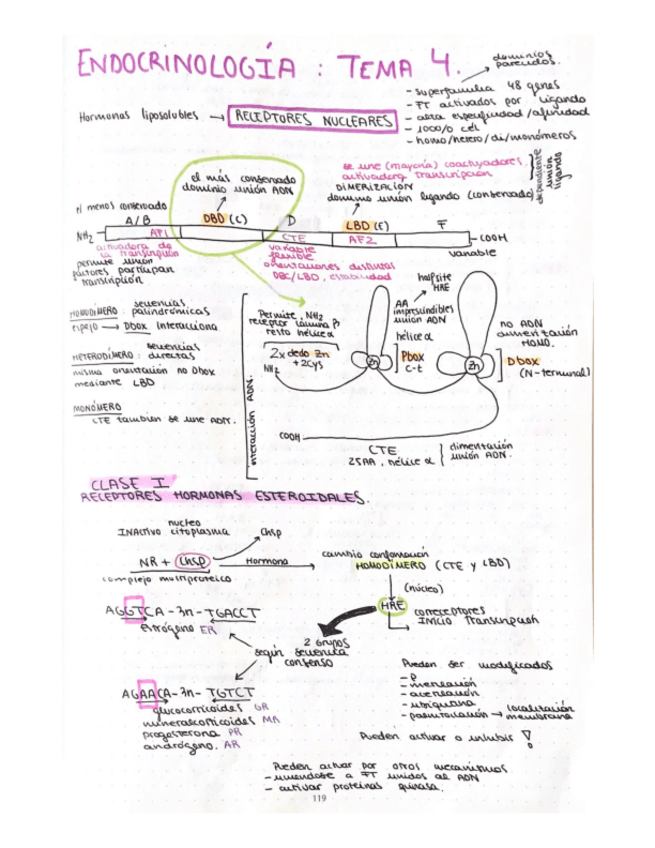 ENDOCRINOLOGÍA : TEMA 4.
dominios
parecidos.
Hormonas liposolubles → RECEPTORES NUCLEARES
- superfamilia 48 genes
- FT activados por ligando
- alta especificidad/afinidad
- 1000/0 cél
- homo/hetero/di/monómeros
el más conservado
dominio unión ADN
se une (mayoría) coactivadores.
activadora transcripción
DIMERIZACIÓN
dominio unión ligando (conservado)
dependiente
unión
ligando
el menos conservado
A/B
DBD (C)
D
LBD (E)
F
NH2
AF1
CTE
AF2
COOH
activadora de
la transcripción
permite unión
factores participan
transcripción
variable
flexible
orientaciones distintas
DBC/LBD, estabilidad
variable
HOMODÍMERO: secuencias
palindrómicas
espejo → DBOX interacciona
HETERODÍMERO: secuencias
directas
misma orientación no Dbox
mediante LBD
MONÓMERO
CTE también se une ADN.
interacción ADN.
Permite, NH2
receptor lámina β
resto hélice α
2x dedo Zn
+2cys
NH2
half site
HRE
AA
imprescindibles
unión ADN
hélice α
Zn
Pbox
C-t
Zn
no ADN
dimerización
HOMO.
Dbox
(N-terminal)
COOH
CTE
25AA, hélice α
dimerización
unión ADN.
CLASE I
RECEPTORES HORMONAS ESTEROIDALES.
núcleo
INACTIVO citoplasma
Chsp
NR + Chsp
Hormona
complejo multiproteico
cambio conformación
HOMODÍMERO (CTE y LBD)
(núcleo)
HRE
correceptores
INICIO Transcripción
AGGTCA-3n-TGACCT
estrógeno ER
2 Grupos
según secuencia
consenso
AGAACA-3n-TGTCT
glucocorticoides GR
mineralcorticoides MR
progesterona PR
andrógeno. AR
Pueden ser modificados
- P
- metilación
- acetilación
- ubiquitina
- palmitoilación → localización
membrana
Pueden activar o inhibir !
Pueden actuar por otros mecanismos
- uniéndose a FT unidos al ADN
- activar proteínas quinasa.
119